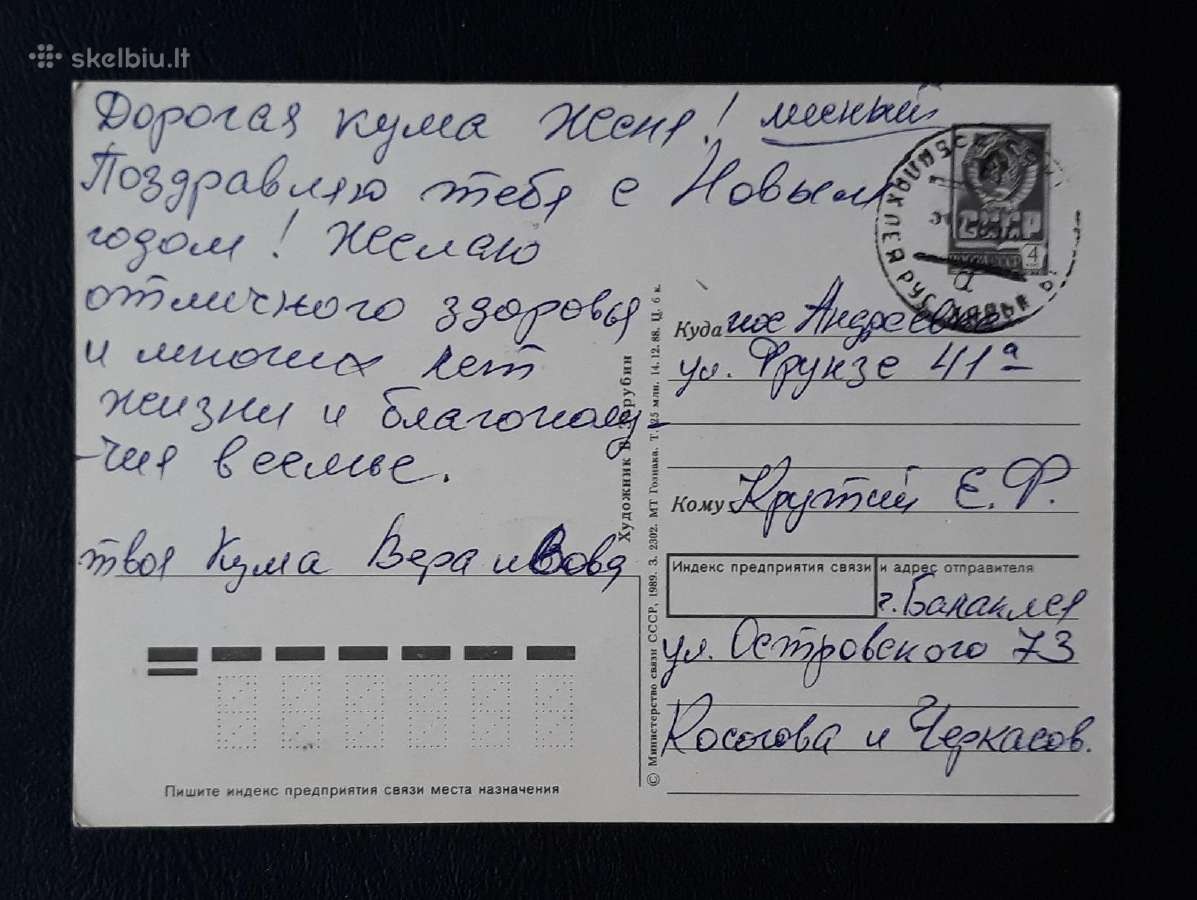 skelbiu.lt
Дорогая кума Женя! месный
Поздравляю тебя с Новым
годом! Желаю
отличного здоровья
и многих лет
жизни и благополу-
-чия в семье.
твоя Кума Вера и Вова
СССР
4
Куда пос Андреевка
ул. Фрунзе 41а
Кому Крутий Е.Ф.
Индекс предприятия связи и адрес отправителя
г. Балаклея
ул. Островского 73
Косогова и Черкасов.
Пишите индекс предприятия связи места назначения
Художник В. Зарубин
© Министерство связи СССР, 1989. З. 2302. МТ Гознака. Т. 25 млн. 14.12.88. Ц. 6 к.